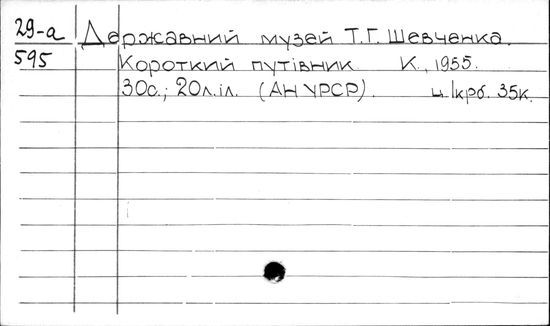 29-а Державний музей Т.Г. Шевченка.
595 Короткий путівник К., 1955.
30с.; 20л.іл. (АН УРСР). ц. 1крб. 35к.